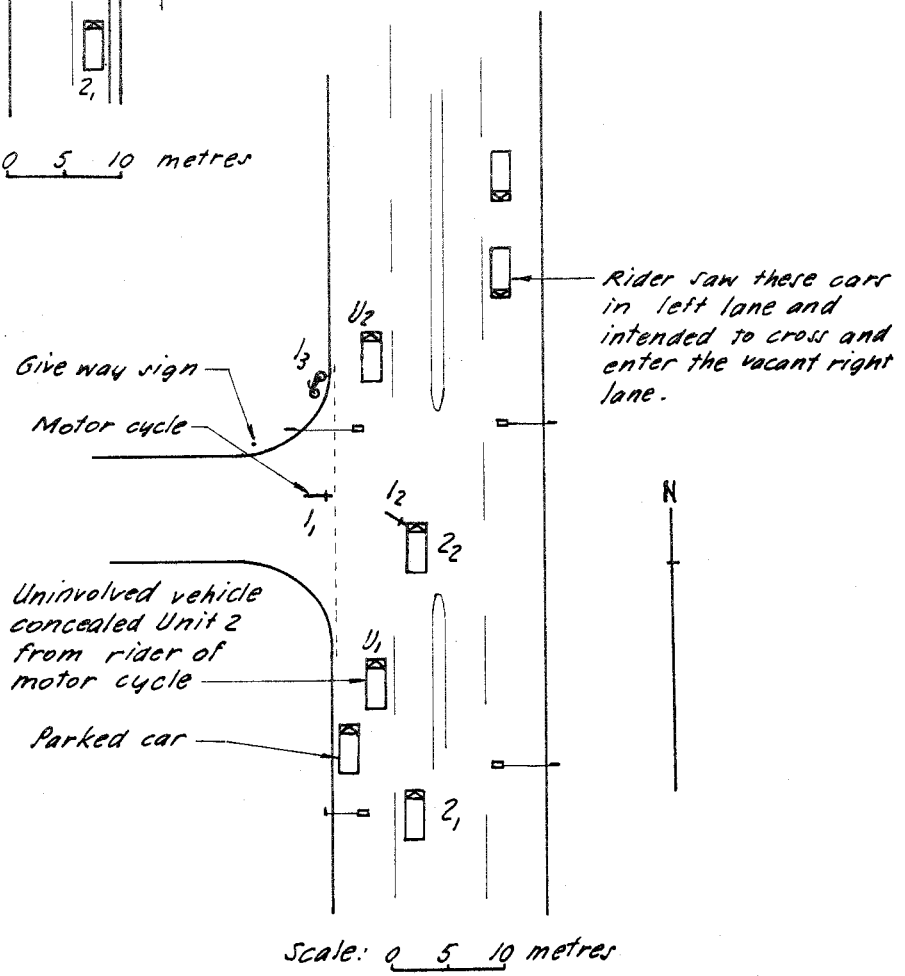 2₁
0 5 10 metres
Rider saw these cars
in left lane and
intended to cross and
enter the vacant right
lane.
U₂
1₃
Give way sign
Motor cycle
N
1₂
1₁
2₂
Uninvolved vehicle
concealed Unit 2
from rider of
motor cycle
U₁
Parked car
2₁
Scale: 0 5 10 metres